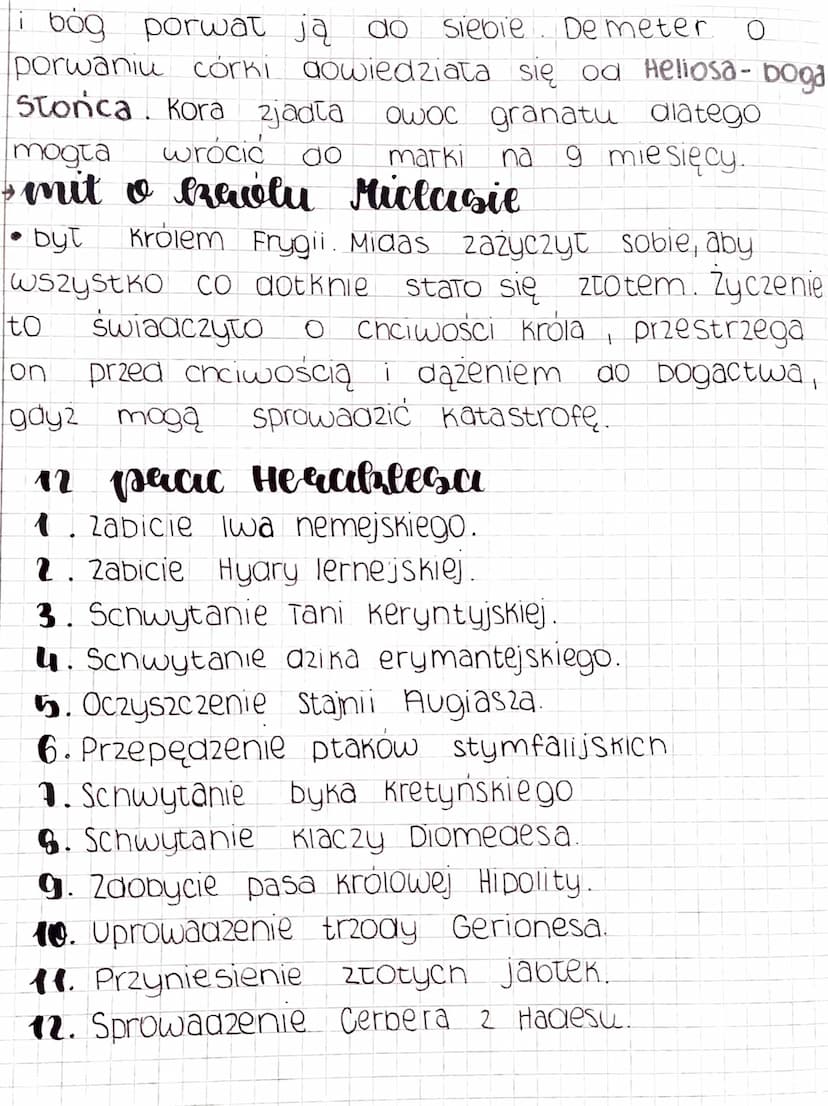 i bóg porwał ją do siebie. Demeter o
porwaniu córki dowiedziała się od Heliosa - boga
Słońca. Kora zjadła owoc granatu dlatego
mogła wrócić do matki na 9 miesięcy.
→ mit o królu Midasie
• był królem Frygii. Midas zażyczył sobie, aby
wszystko co dotknie stało się złotem. Życzenie
to świadczyło o chciwości króla, przestrzega
on przed chciwością i dążeniem do bogactwa,
gdyż mogą sprowadzić katastrofę.
12 prac Heraklesa
1. Zabicie lwa nemejskiego.
2. Zabicie Hydry lernejskiej.
3. Schwytanie łani keryntyjskiej.
4. Schwytanie dzika erymantejskiego.
5. Oczyszczenie stajnii Augiasza.
6. Przepędzenie ptaków stymfalijskich
7. Schwytanie byka kretyńskiego
8. Schwytanie klaczy Diomedesa.
9. Zdobycie pasa królowej Hipolity.
10. Uprowadzenie trzody Gerionesa.
11. Przyniesienie złotych jabłek.
12. Sprowadzenie Cerbera z Hadesu.